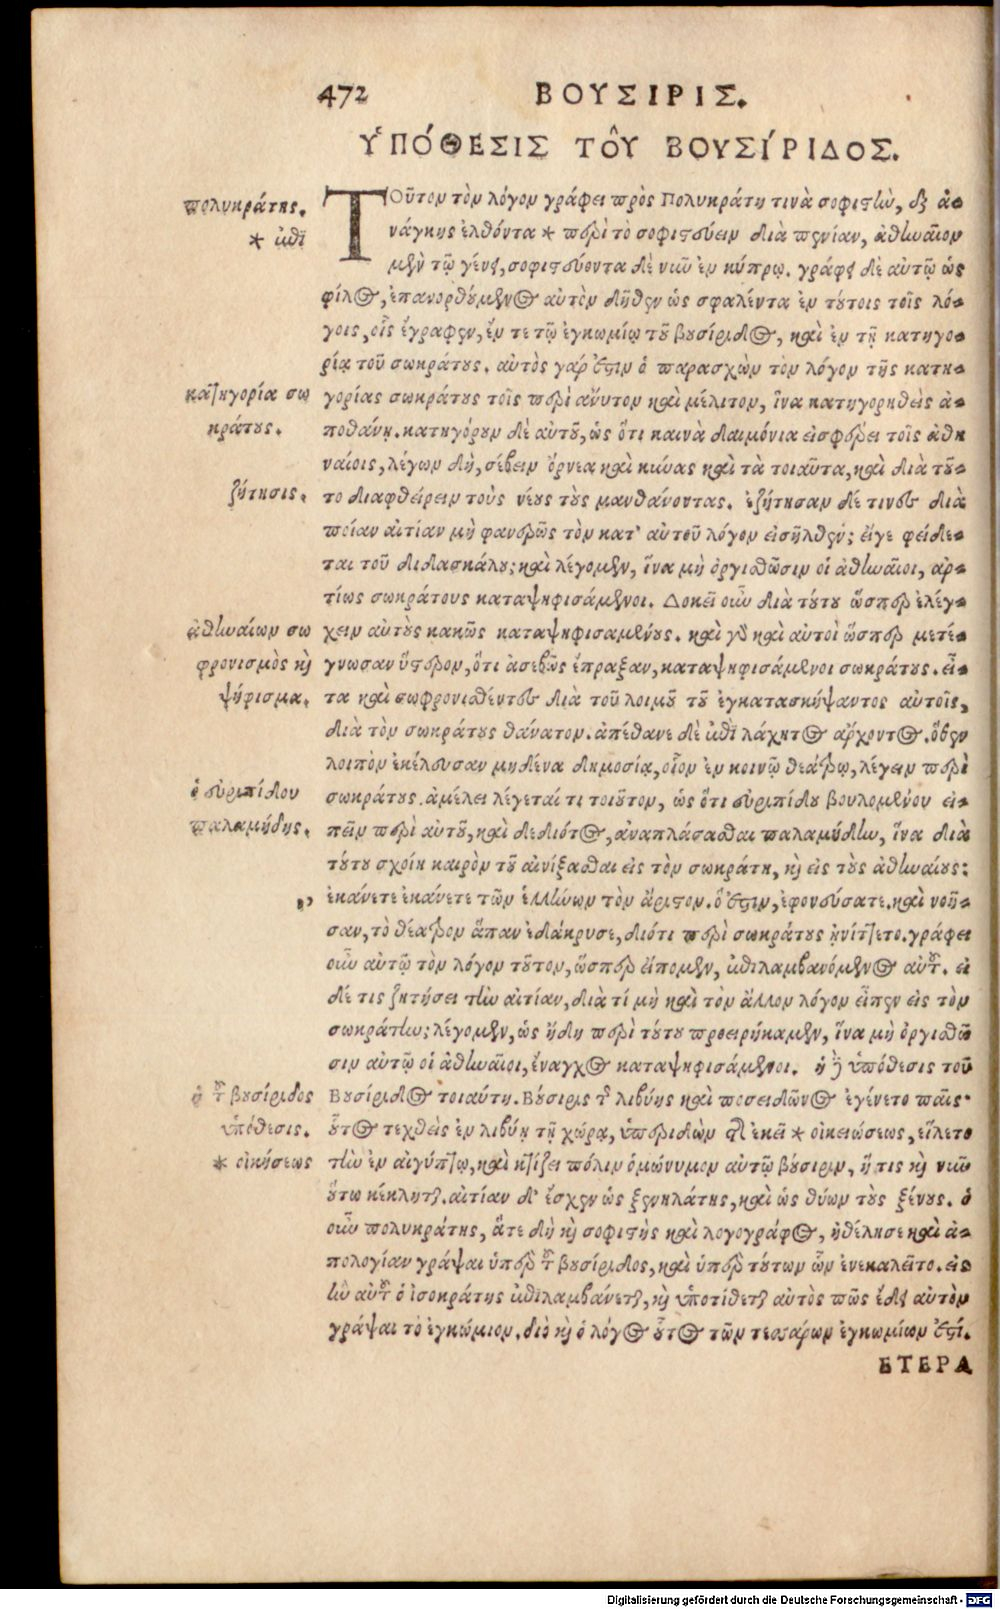 472 ΒΟΥΣΙΡΙΣ.
ὙΠΌΘΕΣΙΣ ΤΟΥ͂ ΒΟΥΣΊΡΙΔΟΣ.
πολυκράτης.
* ἐπὶ
ΤΟῦτον τὸν λόγον γράφει πρὸς Πολυκράτη τινὰ σοφιστὴν, ἐξ ἀ-
νάγκης ἐλθόντα * περὶ τὸ σοφιστεύειν διὰ πενίαν, ἀθηναῖον
μὲν τῷ γένει, σοφιστεύοντα δὲ νῦν ἐν κύπρῳ. γράφει δὲ αὐτῷ ὡς
φίλος, ἐπανορθούμενος αὐτὸν δῆθεν ὡς σφαλέντα ἐν τούτοις τοῖς λό-
γοις, οἷς ἔγραψεν, ἔν τε τῷ ἐγκωμίῳ τοῦ βουσίριδος, καὶ ἐν τῇ κατηγο-
ρίᾳ τοῦ σωκράτους. αὐτὸς γάρ ἐστιν ὁ παρασχὼν τὸν λόγον τῆς κατη-
κατηγορία σω
κράτους.
γορίας σωκράτους τοῖς περὶ ἄνυτον καὶ μέλιτον, ἵνα κατηγορηθεὶς ἀ-
ποθάνῃ. κατηγόρουν δὲ αὐτοῦ, ὡς ὅτι καινὰ δαιμόνια εἰσφέρει τοῖς ἀθη
ναίοις, λέγων δὴ, σέβειν ὄρνεα καὶ κύνας καὶ τὰ τοιαῦτα, καὶ διὰ τοῦ-
ζήτησις.
το διαφθείρειν τοὺς νέους τοὺς μανθάνοντας. ἐζήτησαν δέ τινες διὰ
ποίαν αἰτίαν μὴ φανερῶς τὸν κατ' αὐτοῦ λόγον εἰσῆλθεν; εἴγε φείδε-
ται τοῦ διδασκάλου; καὶ λέγομεν, ἵνα μὴ ὀργισθῶσιν οἱ ἀθηναῖοι, ἀρ-
τίως σωκράτους καταψηφισάμενοι. Δοκεῖ οὖν διὰ τούτου ὥσπερ ἐλέγ-
ἀθηναίων σω
φρονισμὸς καὶ
ψήφισμα.
χειν αὐτοὺς κακῶς καταψηφισαμένους. καὶ γὰρ καὶ αὐτοὶ ὥσπερ μετέ-
γνωσαν ὕστερον, ὅτι ἀσεβῶς ἔπραξαν, καταψηφισάμενοι σωκράτους. εἶ-
τα καὶ σωφρονισθέντες διὰ τοῦ λοιμοῦ τοῦ ἐγκατασκήψαντος αὐτοῖς,
διὰ τὸν σωκράτους θάνατον. ἀπέθανε δὲ ἐπὶ λάχητος ἄρχοντος. ὅθεν
λοιπὸν ἐκέλευσαν μηδένα δημοσίᾳ, οἷον ἐν κοινῷ θεάτρῳ, λέγειν περὶ
ὁ εὐριπίδου
παλαμήδης.
σωκράτους. ἀμέλει λέγεταί τι τοιοῦτον, ὡς ὅτι εὐριπίδου βουλομένου εἰ-
πεῖν περὶ αὐτοῦ, καὶ δεδιότος, ἀναπλάσασθαι παλαμήδην, ἵνα διὰ
τούτου σχοίη καιρὸν τοῦ αἰνίξασθαι εἰς τὸν σωκράτη, καὶ εἰς τοὺς ἀθηναίους:
,, ἐκάνετε ἐκάνετε τῶν ἑλλήνων τὸν ἄριστον. ὅ ἐστιν, ἐφονεύσατε. καὶ νοῆ-
σαν, τὸ θέατρον ἅπαν ἐδάκρυσε, διότι περὶ σωκράτους ᾐνίττετο. γράφει
οὖν αὐτῷ τὸν λόγον τοῦτον, ὥσπερ εἴπομεν, ἐπιλαμβανόμενος αὐτοῦ. εἰ
δέ τις ζητήσει τὴν αἰτίαν, διὰ τί μὴ καὶ τὸν ἄλλον λόγον εἶπεν εἰς τὸν
σωκράτην; λέγομεν, ὡς ἤδη περὶ τούτου προειρήκαμεν, ἵνα μὴ ὀργισθῶ
σιν αὐτῷ οἱ ἀθηναῖοι, ἔναγχος καταψηφισάμενοι. ἡ δὲ ὑπόθεσις τοῦ
ἡ τοῦ βουσίριδος
ὑπόθεσις.
* οἰκήσεως
Βουσίριδος τοιαύτη. Βούσιρις τῆς λιβύης καὶ ποσειδῶνος ἐγένετο παῖς·
οὗτος τεχθεὶς ἐν λιβύῃ τῇ χώρᾳ, ὑπεριδὼν τῆς ἐκεῖ * οἰκειώσεως, εἵλετο
τὴν ἐν αἰγύπτῳ, καὶ κτίζει πόλιν ὁμώνυμον αὐτῷ βούσιριν, ἥ τις καὶ νῦν
οὕτω κέκληται. αἰτίαν δ' ἔσχεν ὡς ξενηλάτης, καὶ ὡς θύων τοὺς ξένους. ὁ
οὖν πολυκράτης, ἅτε δὴ καὶ σοφιστὴς καὶ λογογράφος, ἠθέλησε καὶ ἀ-
πολογίαν γράψαι ὑπὲρ τοῦ βουσίριδος, καὶ ὑπὲρ τούτων ὧν ἐνεκαλεῖτο. εἰς
ἣν αὐτοῦ ὁ ἰσοκράτης ἐπιλαμβάνεται, καὶ ὑποτίθεται αὐτὸς πῶς ἔδει αὐτὸν
γράψαι τὸ ἐγκώμιον. διὸ καὶ ὁ λόγος οὗτος τῶν τεσσάρων ἐγκωμίων ἐστί.
ΕΤΕΡΑ
Digitalisierung gefördert durch die Deutsche Forschungsgemeinschaft - DFG